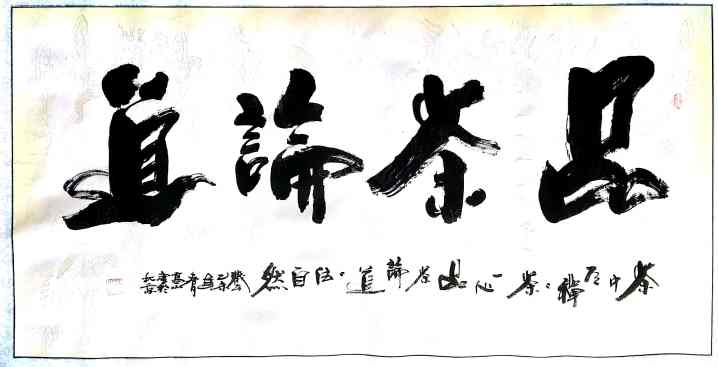 品茶論道
茶中有禪茶々一心品茶論道道法自然